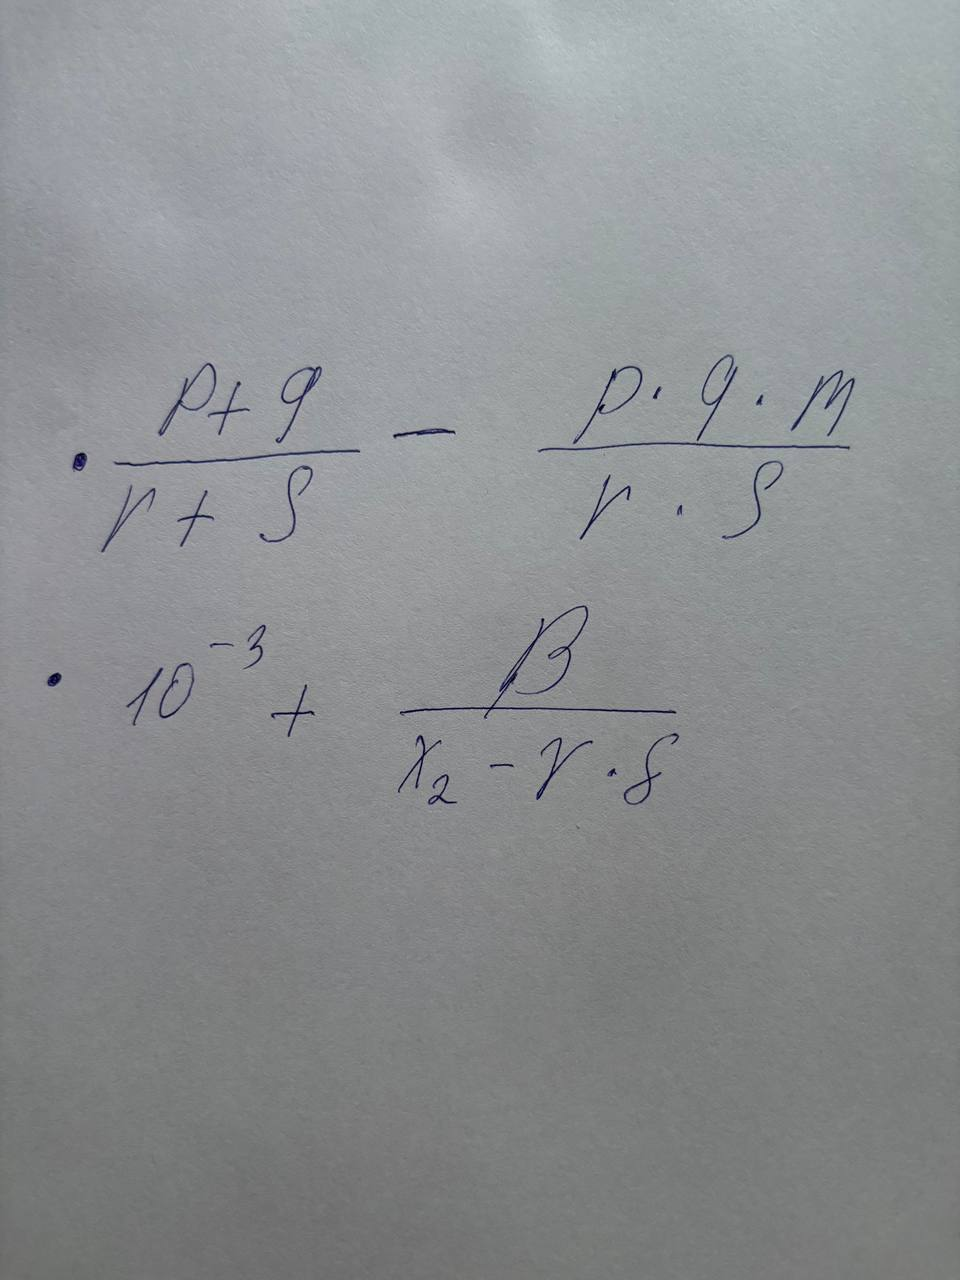 • (p + q)/(r + s) − (p · q · m)/(r · s)
• 10⁻³ + β/(x₂ − γ · δ)